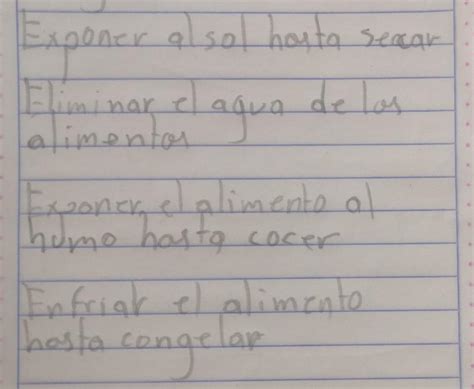 Exponer al sol hasta secar
Eliminar el agua de los
alimentos
Exponer el alimento al
humo hasta cocer
Enfriar el alimento
hasta congelar